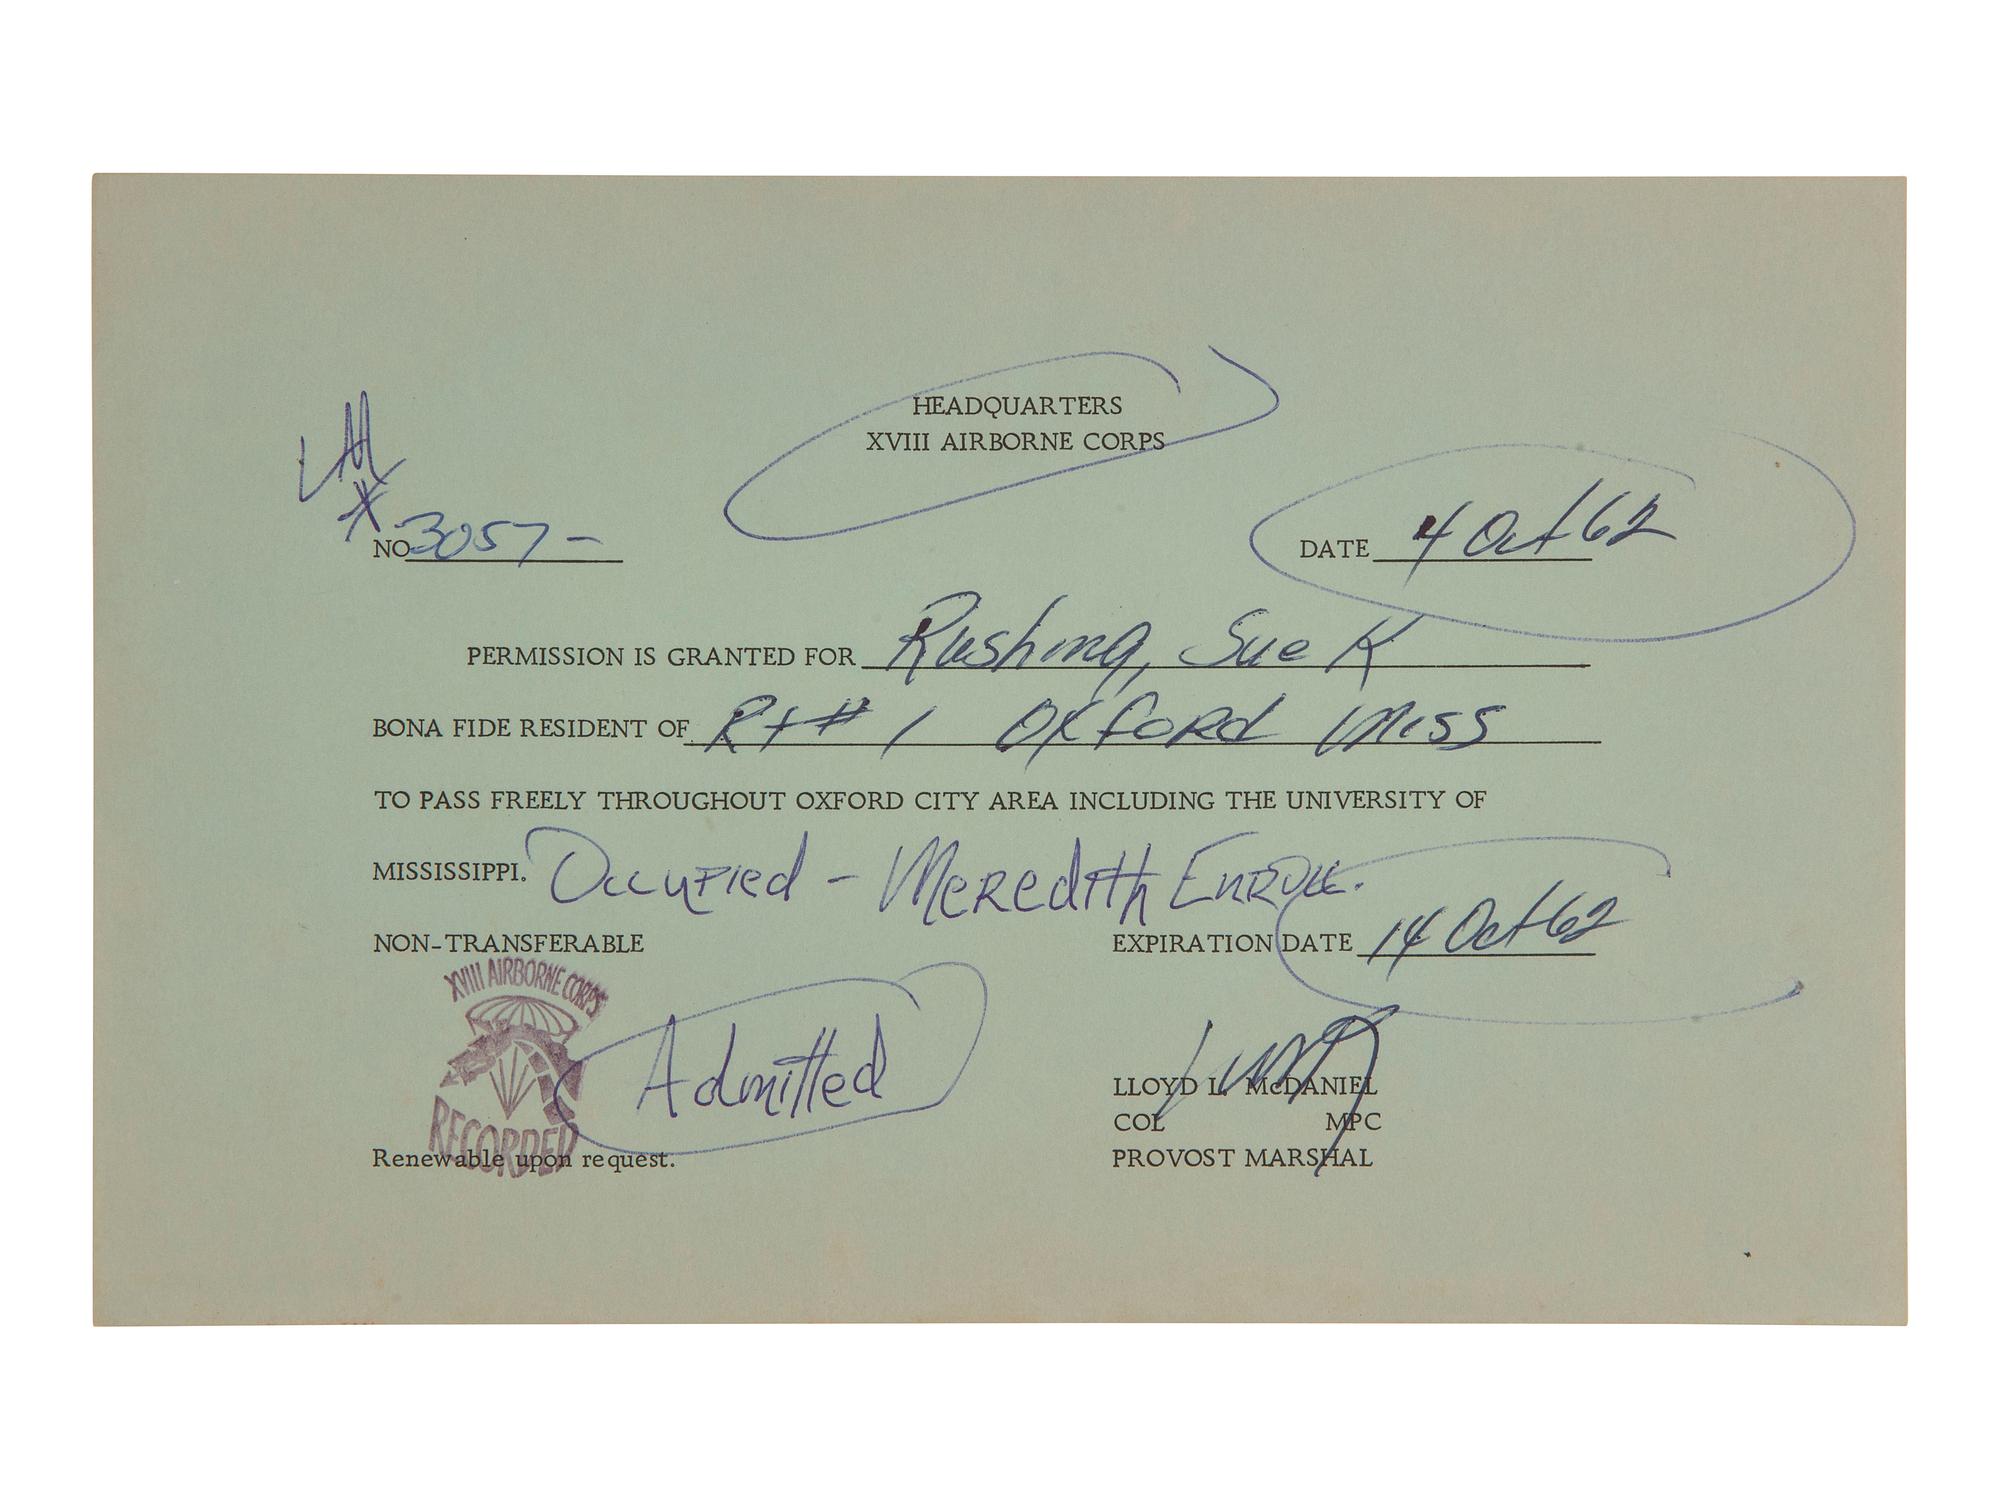 HEADQUARTERS
XVIII AIRBORNE CORPS
NO 3057-
DATE 4 Oct 62
PERMISSION IS GRANTED FOR Rushing, Sue K
BONA FIDE RESIDENT OF Rt # 1 Oxford Miss
TO PASS FREELY THROUGHOUT OXFORD CITY AREA INCLUDING THE UNIVERSITY OF
MISSISSIPPI. Occupied - Meredith Enroll.
NON-TRANSFERABLE
EXPIRATION DATE 14 Oct 62
XVIII AIRBORNE CORPS
RECORDED
Admitted
LLOYD L. McDANIEL
COL MPC
Renewable upon request.
PROVOST MARSHAL